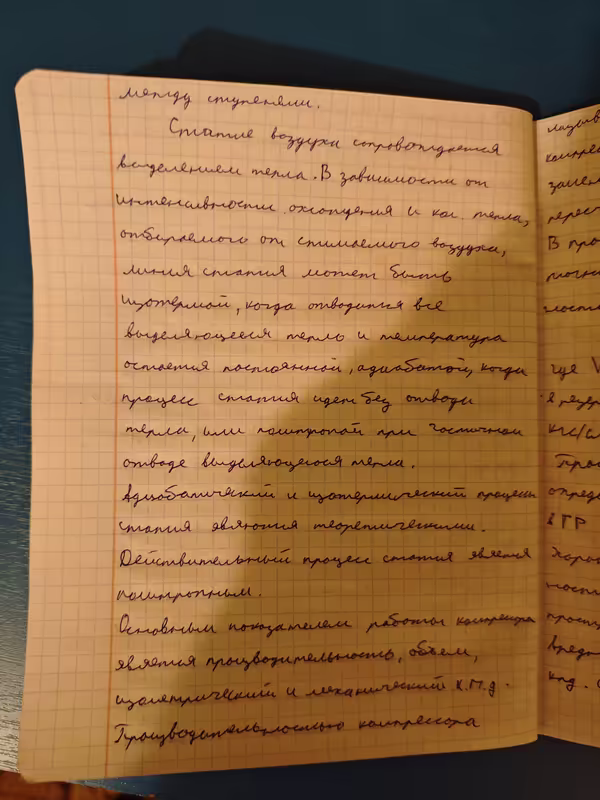 между ступенями.
Сжатие воздуха сопровождается
выделением тепла. В зависимости от
интенсивности охлаждения и кол. тепла,
отбираемого от сжимаемого воздуха,
линия сжатия может быть
изотермой, когда отводится всё
выделяющееся тепло и температура
остается постоянной, адиабатой, когда
процесс сжатия идет без отвода
тепла, или политропой при частичном
отводе выделяющегося тепла.
Адиабатический и изотермический процессы
сжатия являются теоретическими.
Действительный процесс сжатия является
политропным.
Основным показателем работы компрессора
является производительность, объем,
изометрический и механический к.п.д.
Производительностью компрессора
В про
где V
кгс/с
опреде
в ГР
кпд.